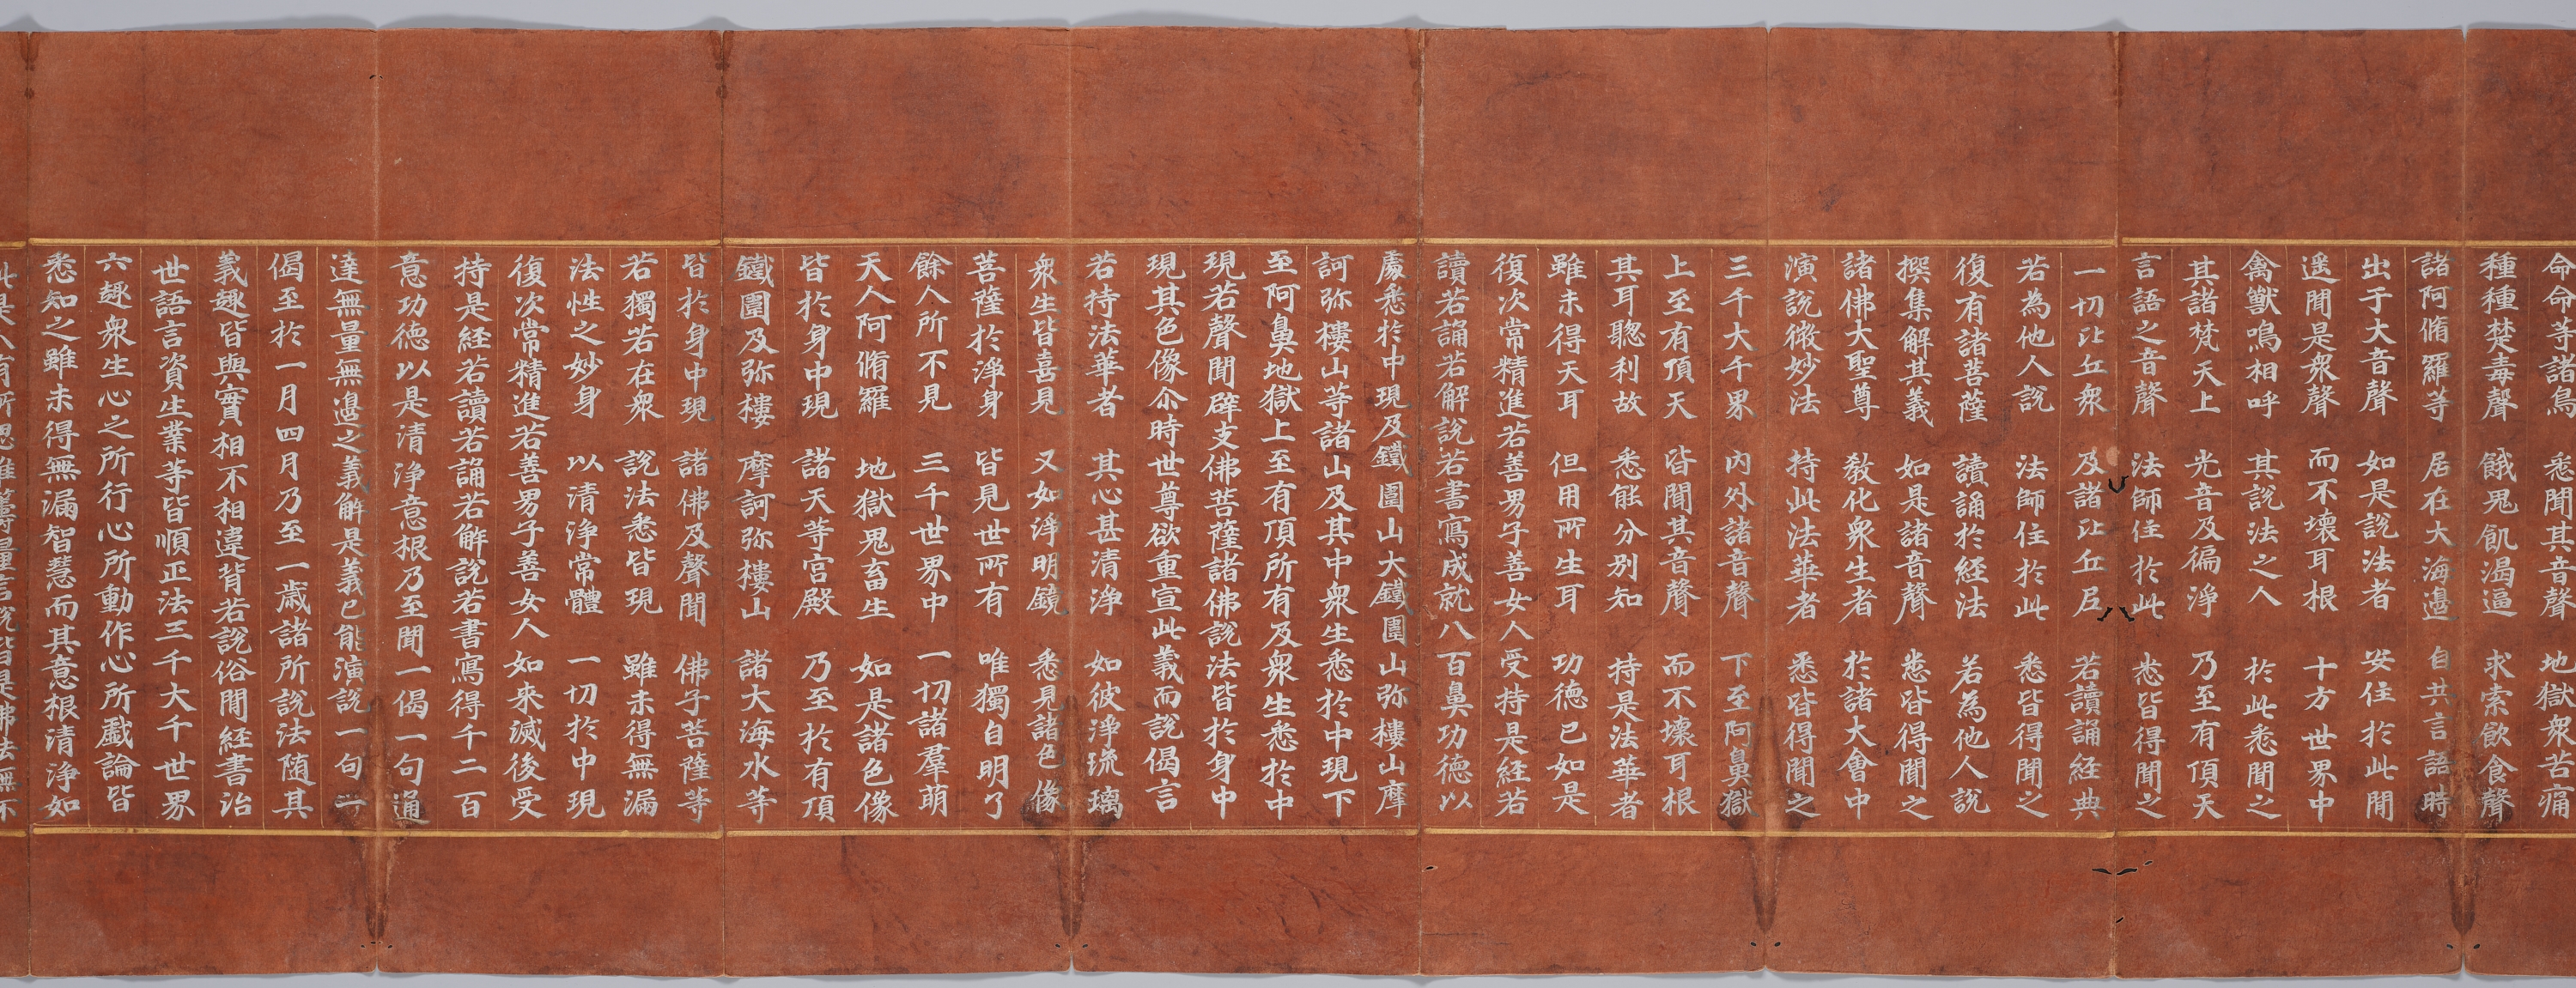 命命等諸鳥　悉聞其音聲　地獄衆苦痛
種種楚毒聲　餓鬼飢渴逼　求索飲食聲
諸阿脩羅等　居在大海邊　自共言語時
出于大音聲　如是說法者　安住於此閒
遥聞是衆聲　而不壞耳根　十方世界中
禽獸鳴相呼　其說法之人　於此悉聞之
其諸梵天上　光音及徧淨　乃至有頂天
言語之音聲　法師住於此　悉皆得聞之
一切比丘衆　及諸比丘尼　若讀誦經典
若為他人說　法師住於此　悉皆得聞之
復有諸菩薩　讀誦於経法　若為他人說
撰集解其義　如是諸音聲　悉皆得聞之
諸佛大聖尊　教化衆生者　於諸大會中
演說微妙法　持此法華者　悉皆得聞之
三千大千界　内外諸音聲　下至阿鼻獄
上至有頂天　皆聞其音聲　而不壞耳根
其耳聰利故　悉能分別知　持是法華者
雖未得天耳　但用所生耳　功德已如是
復次常精進若善男子善女人受持是経若
讀若誦若解說若書寫成就八百鼻功德以
處悉於中現及鐵圍山大鐵圍山弥樓山摩
訶弥樓山等諸山及其中衆生悉於中現下
至阿鼻地獄上至有頂所有及衆生悉於中
現若聲聞辟支佛菩薩諸佛說法皆於身中
現其色像尒時世尊欲重宣此義而說偈言
若持法華者　其心甚清淨　如彼淨琉璃
衆生皆喜見　又如淨明鏡　悉見諸色像
菩薩於淨身　皆見世所有　唯獨自明了
餘人所不見　三千世界中　一切諸羣萌
天人阿脩羅　地獄鬼畜生　如是諸色像
皆於身中現　諸天等宮殿　乃至於有頂
鐵圍及弥樓　摩訶弥樓山　諸大海水等
皆於身中現　諸佛及聲聞　佛子菩薩等
若獨若在衆　說法悉皆現　雖未得無漏
法性之妙身　以清淨常體　一切於中現
復次常精進若善男子善女人如來滅後受
持是経若讀若誦若解說若書寫得千二百
意功德以是清淨意根乃至聞一偈一句通
達無量無邊之義解是義已能演說一句一
偈至於一月四月乃至一歲諸所說法随其
義趣皆與實相不相違背若說俗閒経書治
世語言資生業等皆順正法三千大千世界
六趣衆生心之所行心所動作心所戲論皆
悉知之雖未得無漏智慧而其意根清淨如
此是人有所思惟籌量言說皆是佛法無不